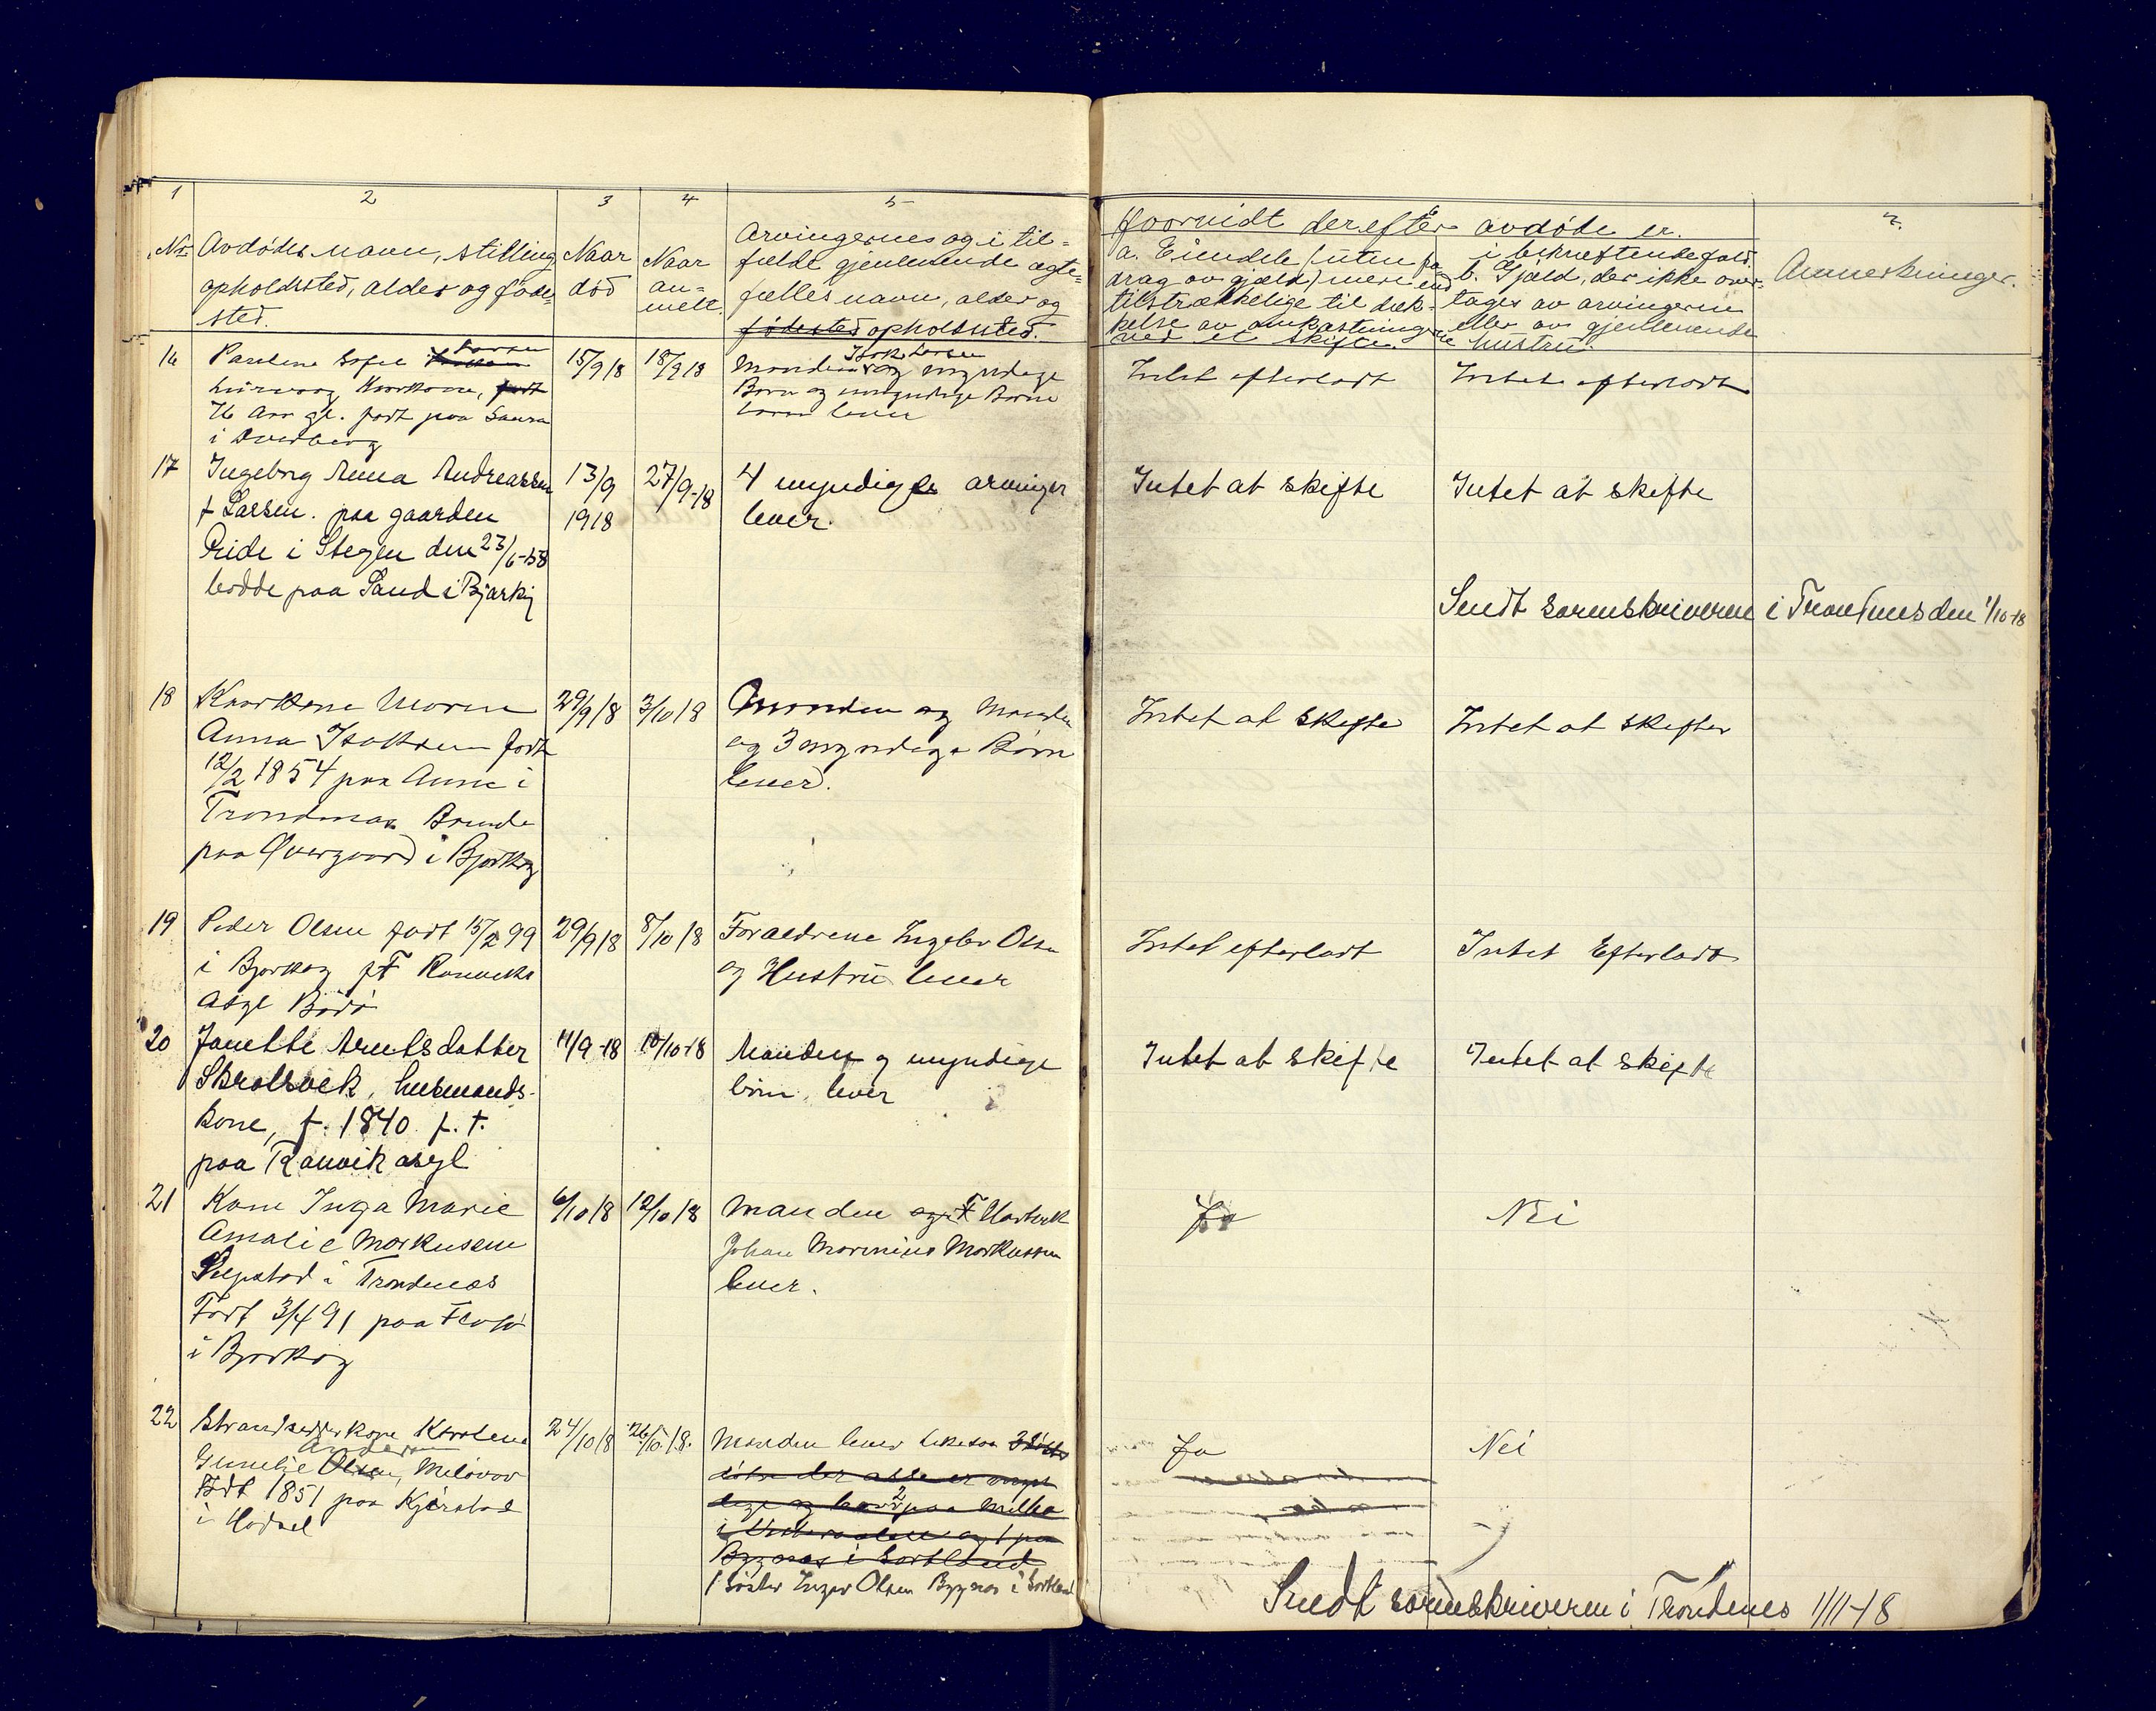 1
2
3
4
5
6
7.
No.
Avdødes navn, stilling
opholdssted, alder og føde-
sted.
Naar
død
Naar
an-
melt.
Arvingernes og i til-
fælde gjenlevende ægte-
fælles navn, alder og
fødested opholdssted.
Hvorvidt der efter avdøde er.
a. Eiendele (uten fra-
drag av gjæld) mere end
tilstrækkelige til dæk-
kelse av omkostningerne
ved et skifte.
i bekræftende fald.
b. Gjæld, der ikke over-
tages av arvingerne
eller av gjenlevende
hustru.
Anmerkninger.
16
Sofie Larsen
Kaarkone, født
76 Aar gl. født paa
i Dverberg
15/9 18
18/9 18
Manden Isak Larsen og myndige
Børn og umyndige Børne
børn lever
Intet efterladt
Intet efterladt
17
Ingeborg Anna Andreassen
f Larsen. paa gaarden
i Stegen den 23/6-58
bodde paa Sand i Bjarkøy
13/9
1918
27/9-18
4 myndige arvinger
lever.
Intet at skifte
Intet at skifte
Sendt sorenskriveren i Trondenes den 1/10-18
18
Kaarkone Maren
Anna Isaksen født
12/2 1854 paa i
Trondenæs Boende
paa Øvergaard i Bjarkøy
29/9 18
3/10 18
Manden og Manden
og 3 myndige Børn
lever.
Intet at skifte
Intet at skifter
19
Peder Olsen født 15/2 99
i Bjarkøy pT Rønviks
Asyl Bodø
29/9 18
8/10 18
Foraeldrene Olsen
og Hustru lever
Intet efterladt
Intet Efterladt
20
Janette Arntsdatter
Skrolsvik, husmands-
kone, f. 1840 p. t.
paa Rønvik asyl
11/9-18
10/10-18
Manden og myndige
børn lever
Intet at skifte
Intet at skifte
21
Kone Inga Marie
Amalie Markussen
i Trondenæs
Født 3/4 91 paa
i Bjarkøy
6/10 18
12/10 18
Manden og pT Harstad
Johan Markussen
lever.
Ja
Nei
22
kone Karolene
Gunelie Olsen Andersen,
Født 1851 paa Kjørstad
i Hadsel
24/10 18
26/10 18.
Manden lever likesaa 3
der alle er mynd
lige og 2 paa Melbo
i Vesteraalen og 1 paa
Bygnes i Sortland
1 Søster Inger Olsen Bygnes i Sortland
Ja
Nei
Sendt sorenskriveren i Trondenes 1/11-18